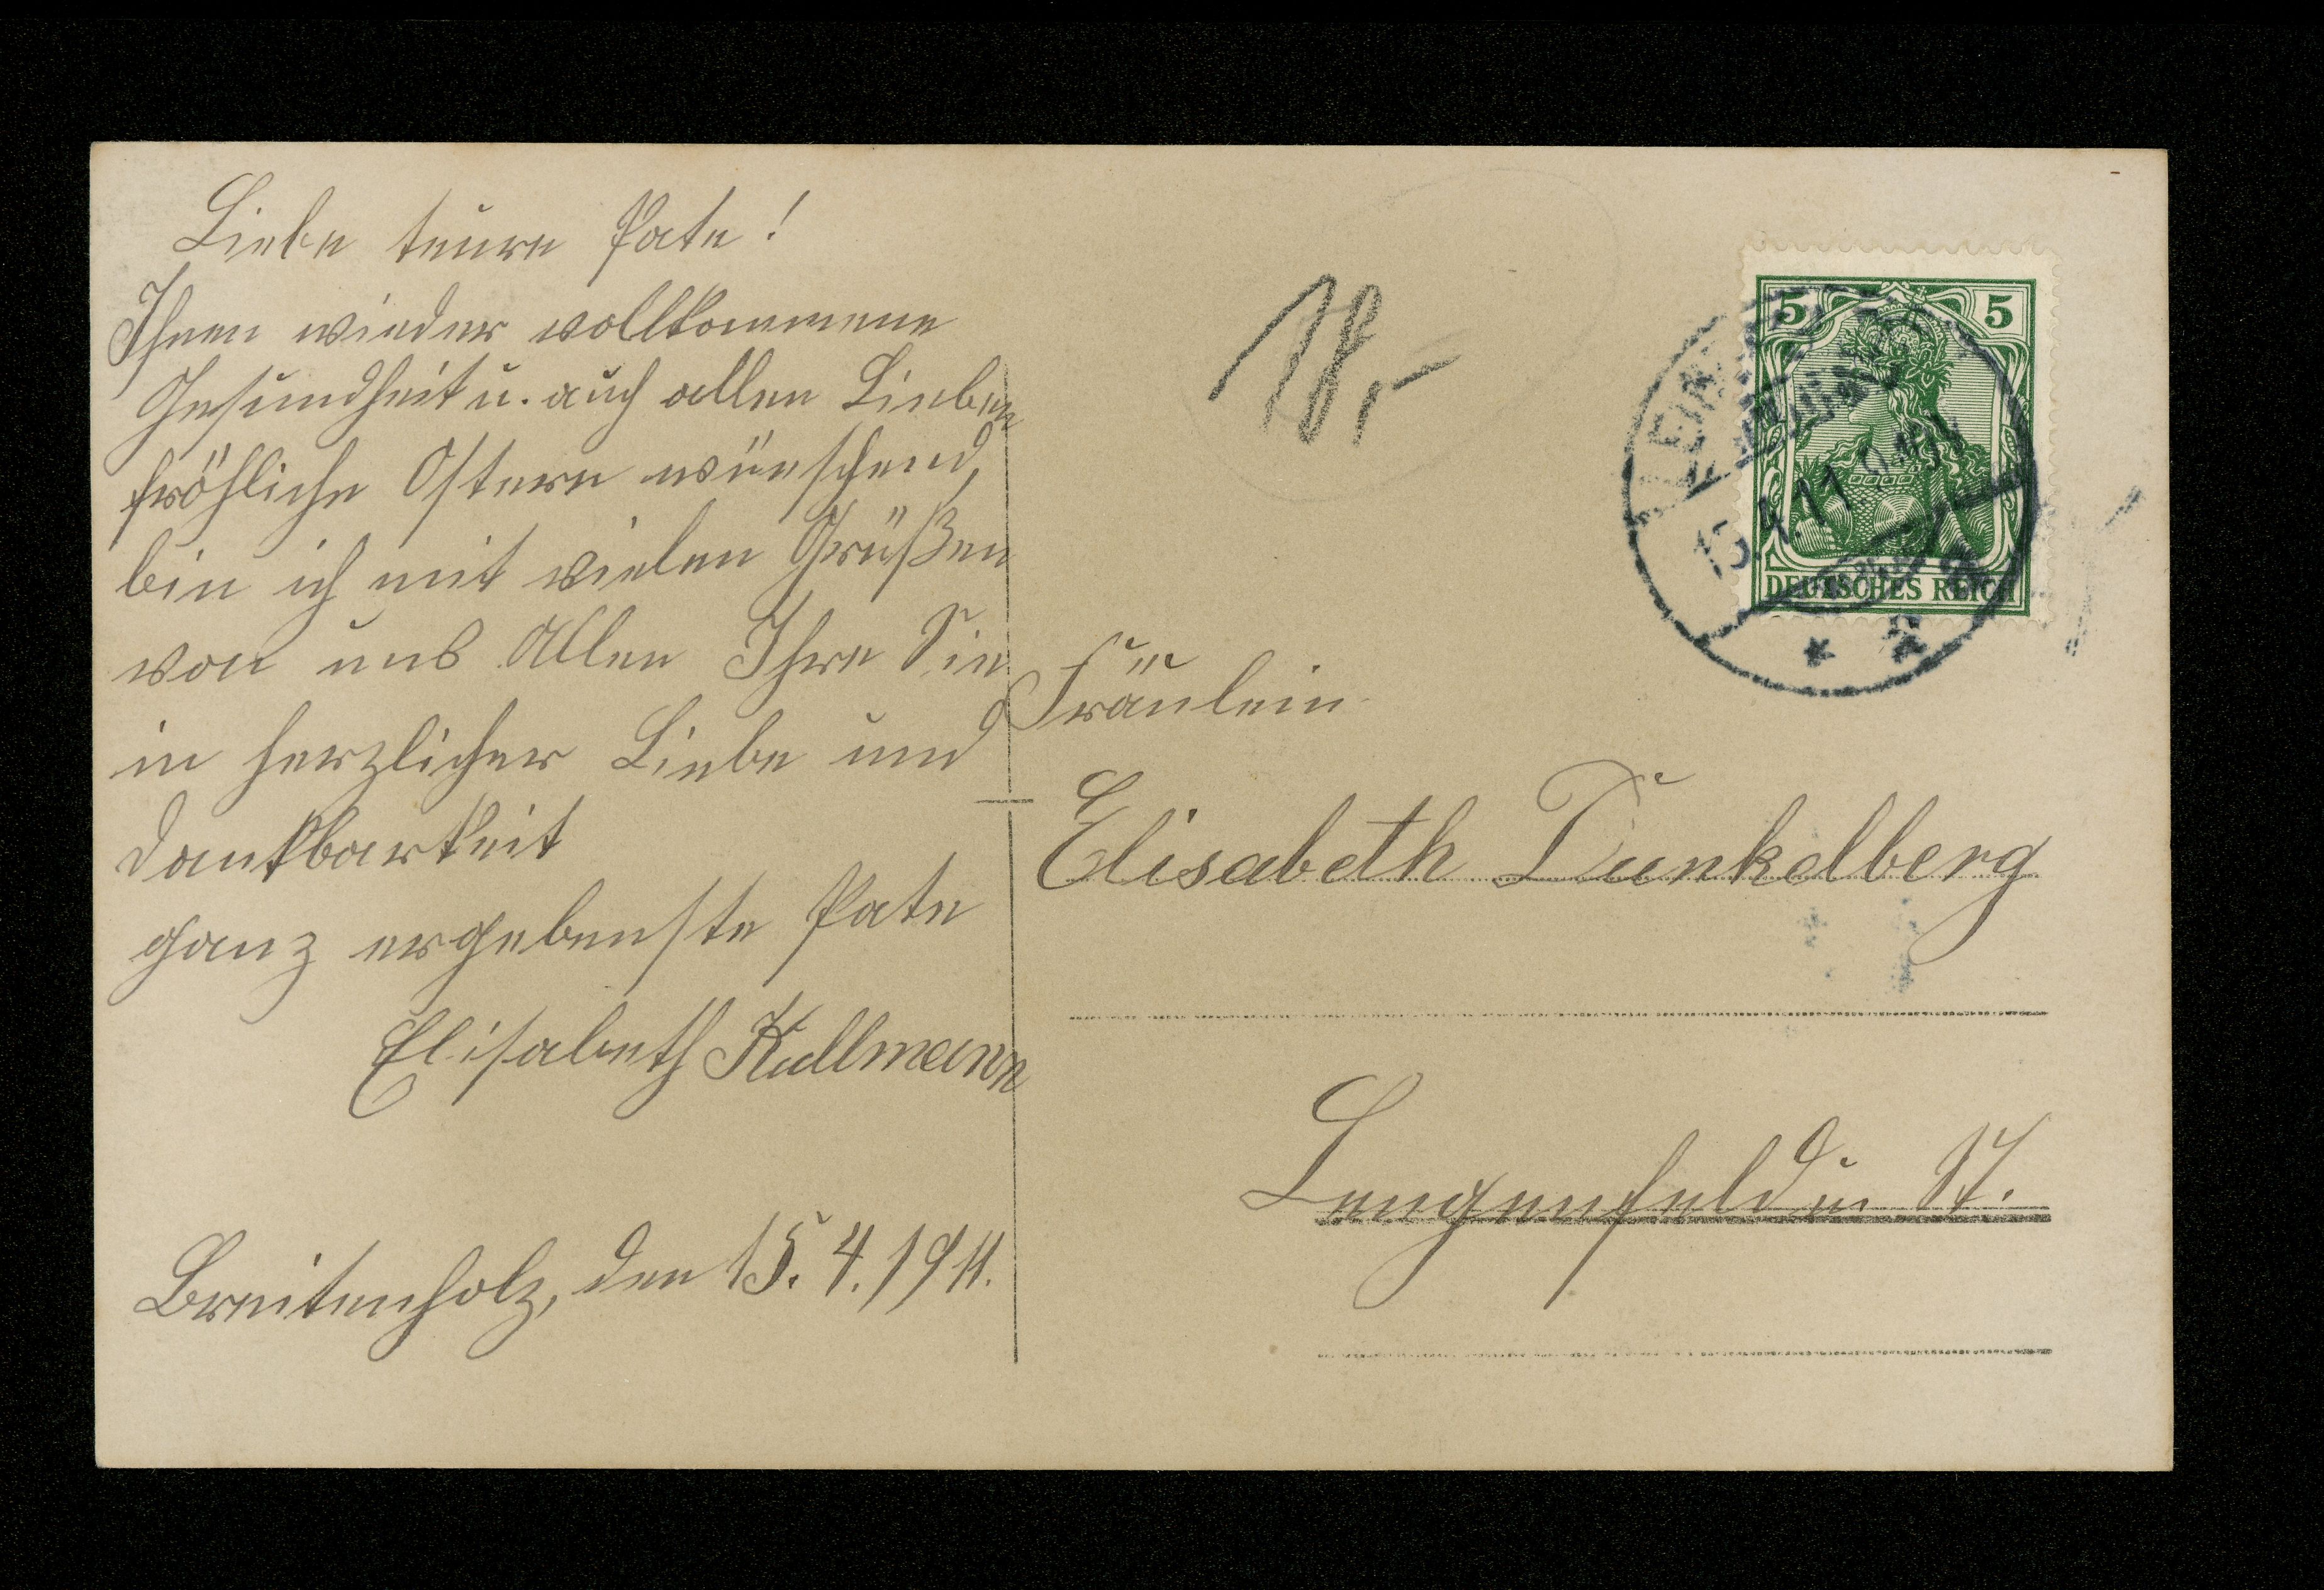 Liebe teure Pate!
Ihnen wieder vollkommene
Gesundheit u. auch allen Lieben
fröhliche Ostern wünschend,
bin ich mit vielen Grüßen
von uns Allen Ihre Sie
in herzlicher Liebe und
Dankbarkeit
ganz ergebenste Pate
Elisabeth Kullmann
Breitenholz, den 15.4.1911.
18,-
5 5
15.4.11
DEUTSCHES REICH
* a
Fräulein
Elisabeth Dunkelberg
Lengenfeld u. St.